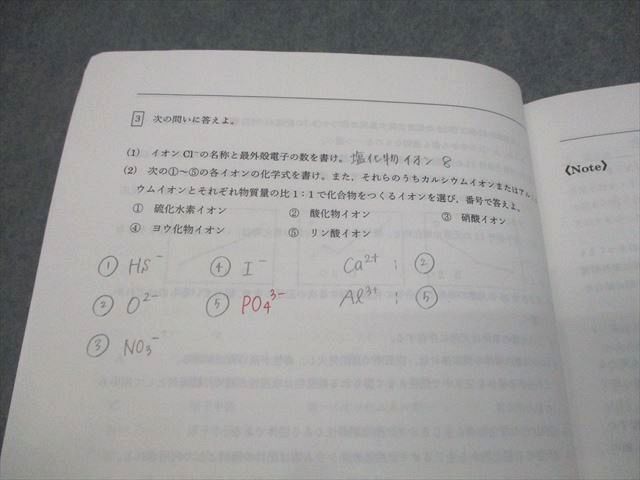 3 次の問いに答えよ。
(1) イオン Cl⁻の名称と最外殻電子の数を書け。 塩化物イオン 8
(2) 次の①〜⑤の各イオンの化学式を書け。また，それらのうちカルシウムイオンまたはアル
ウムイオンとそれぞれ物質量の比 1：1 で化合物をつくるイオンを選び，番号で答えよ。
① 硫化水素イオン ② 酸化物イオン ③ 硝酸イオン
④ ヨウ化物イオン ⑤ リン酸イオン
① HS⁻ ④ I⁻ Ca²⁺ : ②
② O²⁻ ⑤ PO₄³⁻ Al³⁺ : ⑤
③ NO₃⁻
《Note》